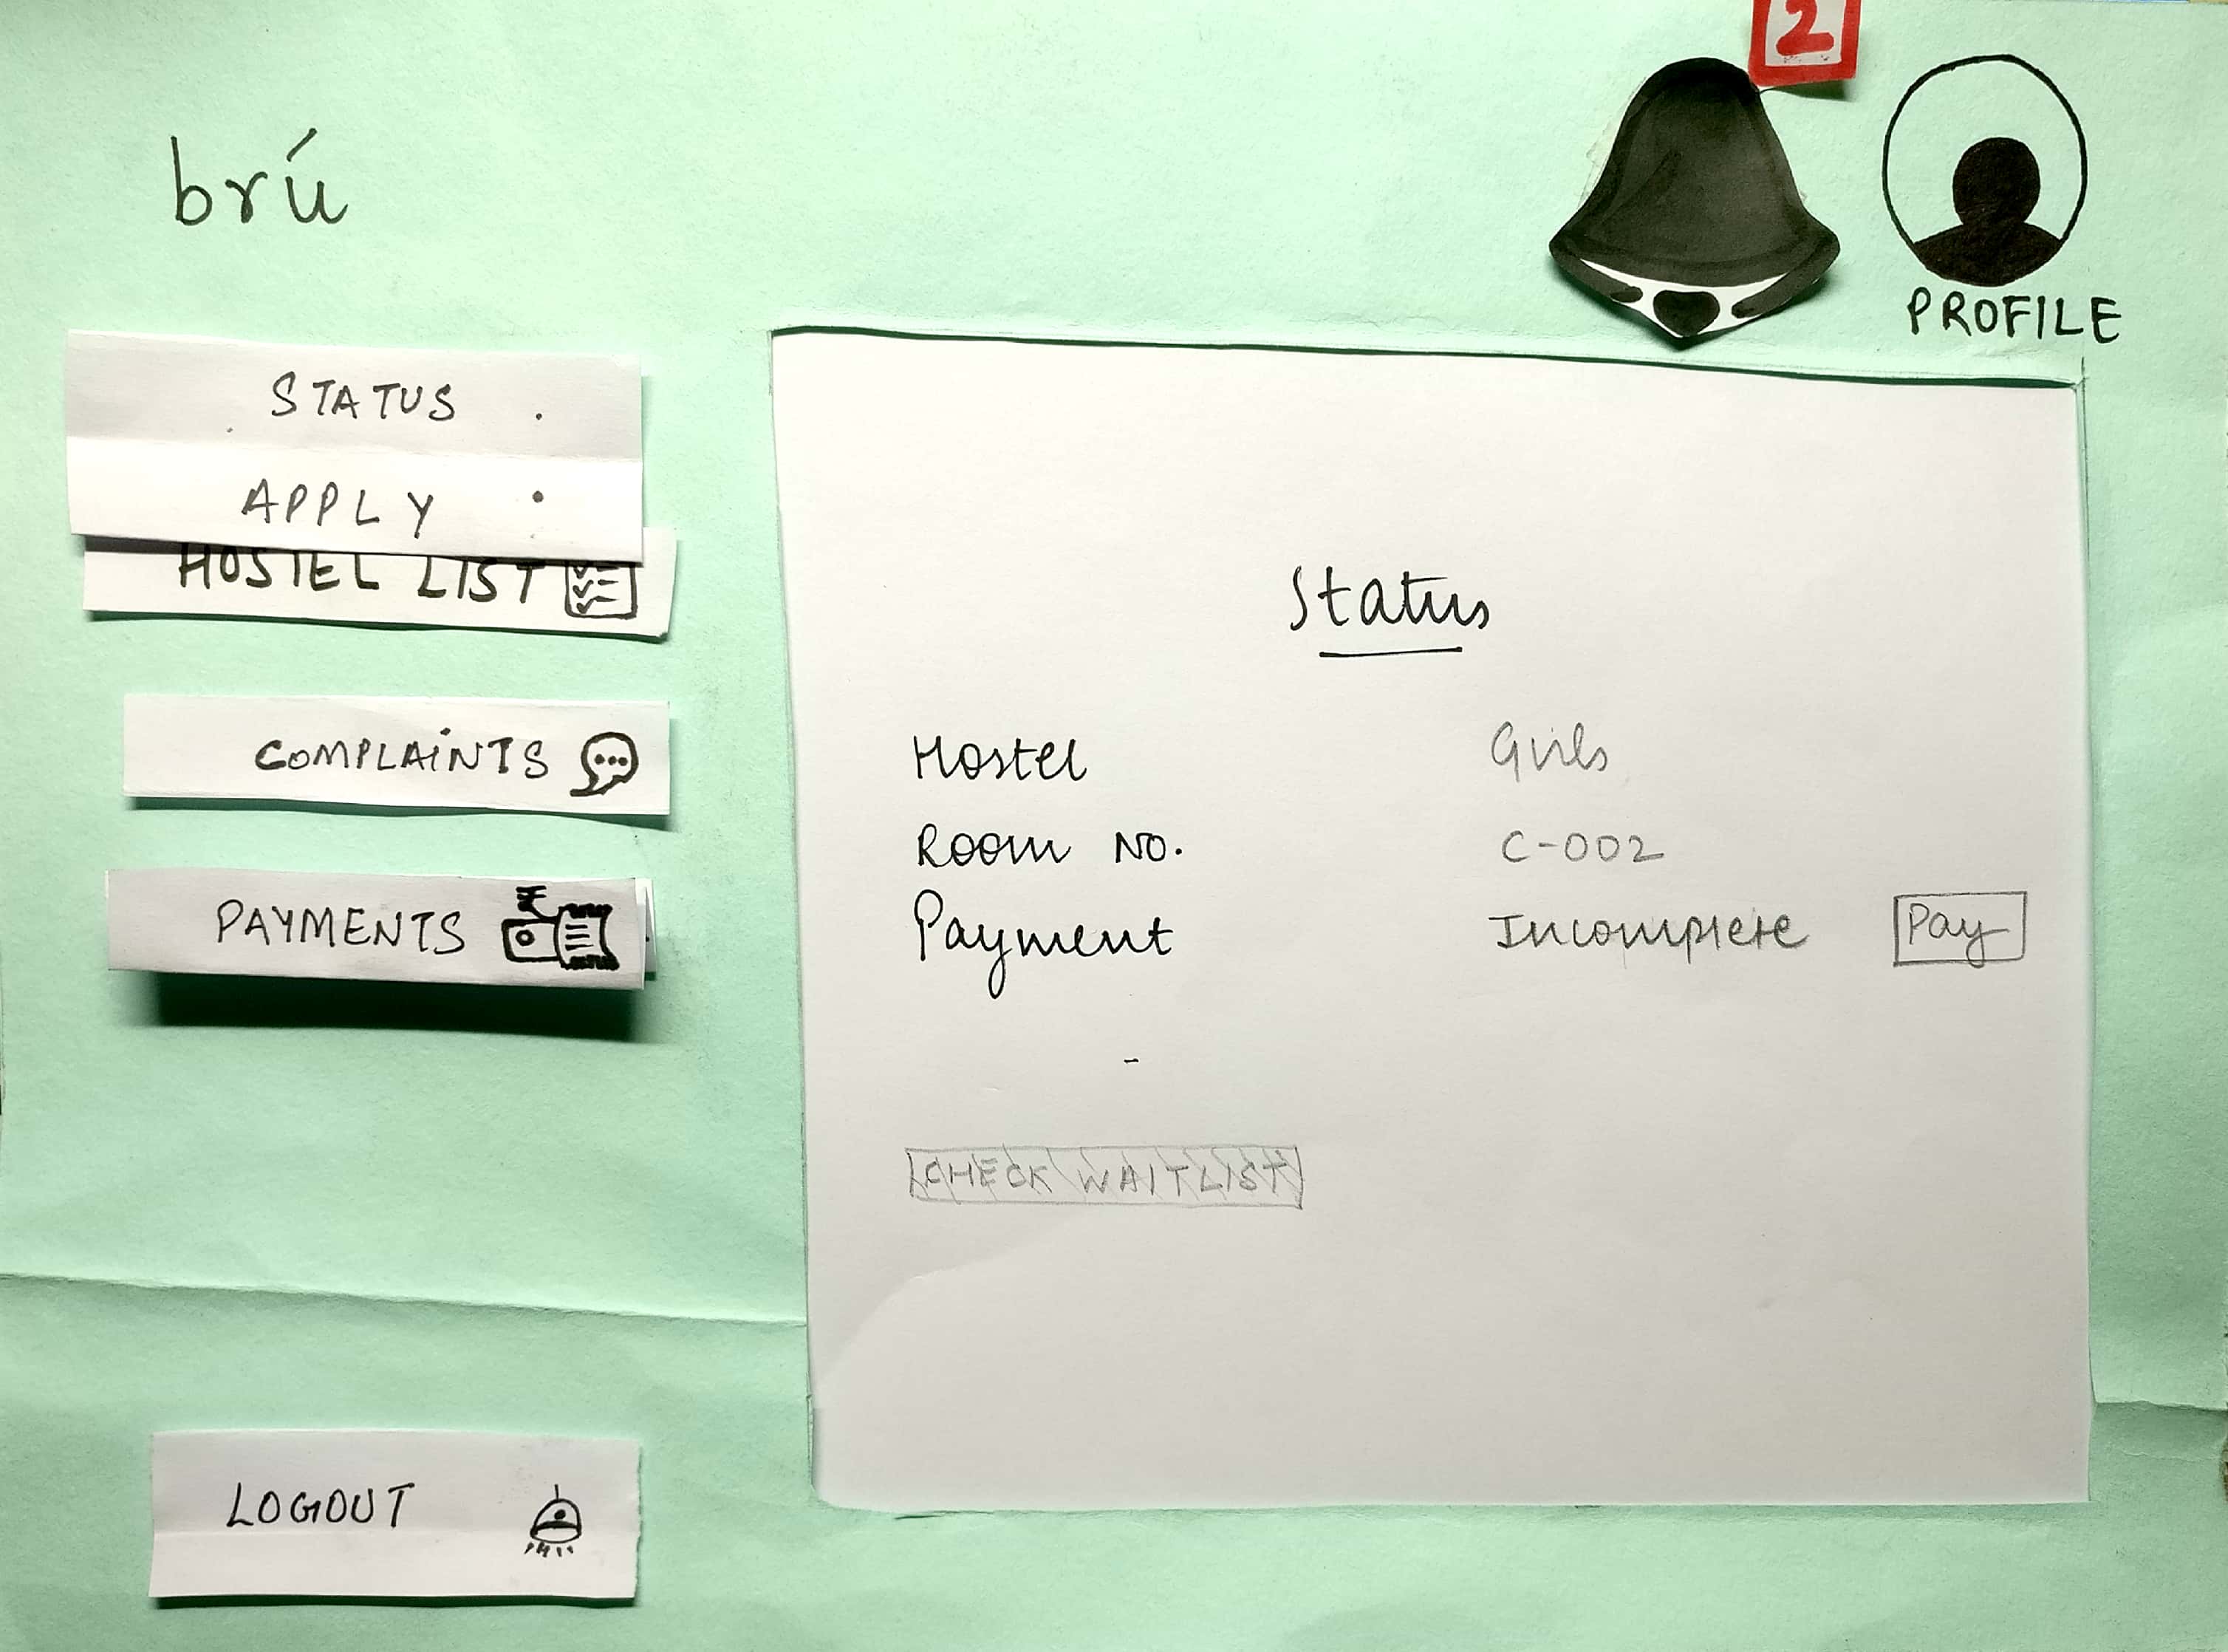 2
brú
PROFILE
STATUS
APPLY
HOSTEL LIST
COMPLAINTS
PAYMENTS ₹
LOGOUT
Status
Hostel Girls
Room No. C-002
Payment Incomplete Pay
CHECK WAITLIST